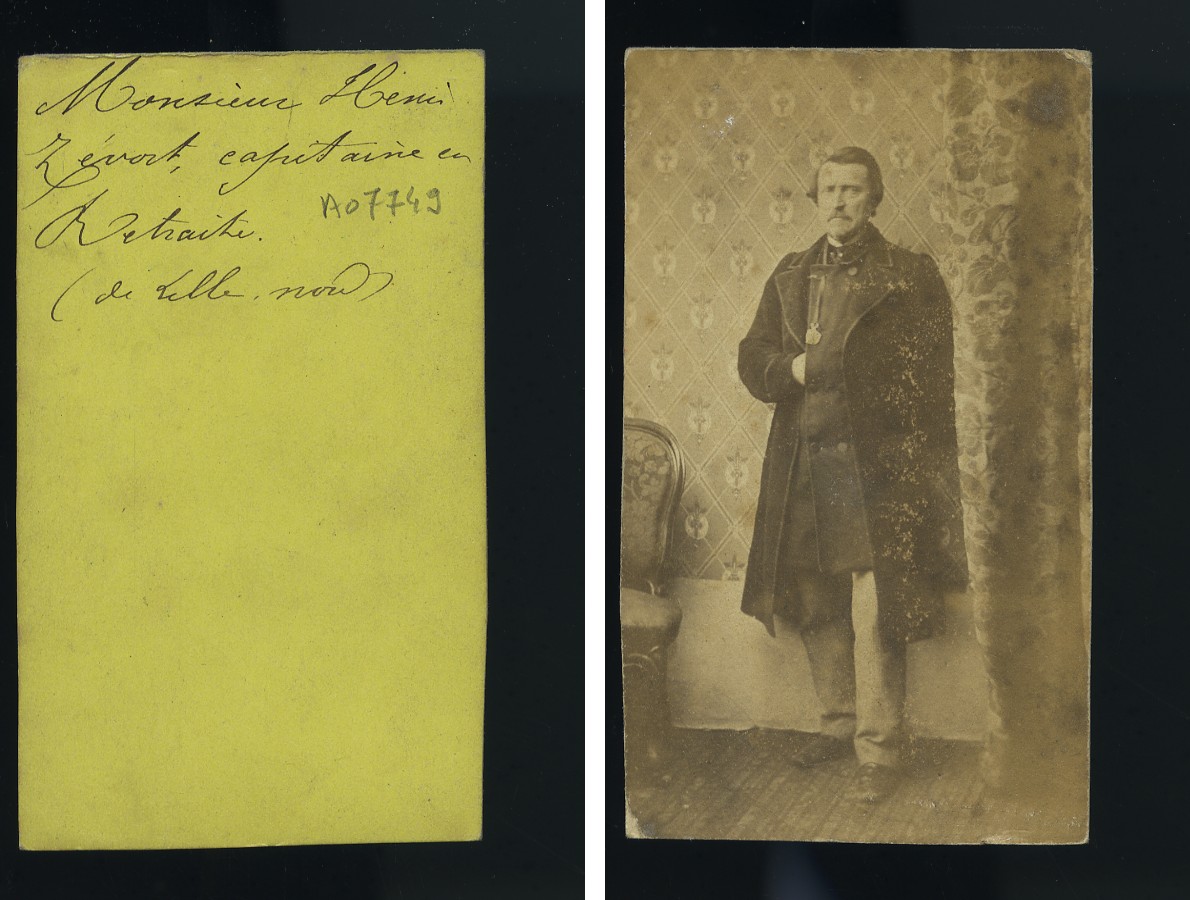 Monsieur Henri
Zévort, capitaine en
Retraite.
A07749
(de Lille, nord)